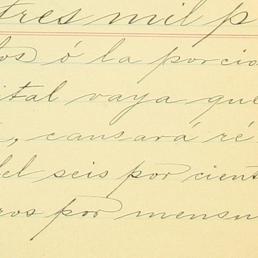 tres mil p
los ó la porcio
ital vaya que
, causará ré
del seis por cient
ros por mensu